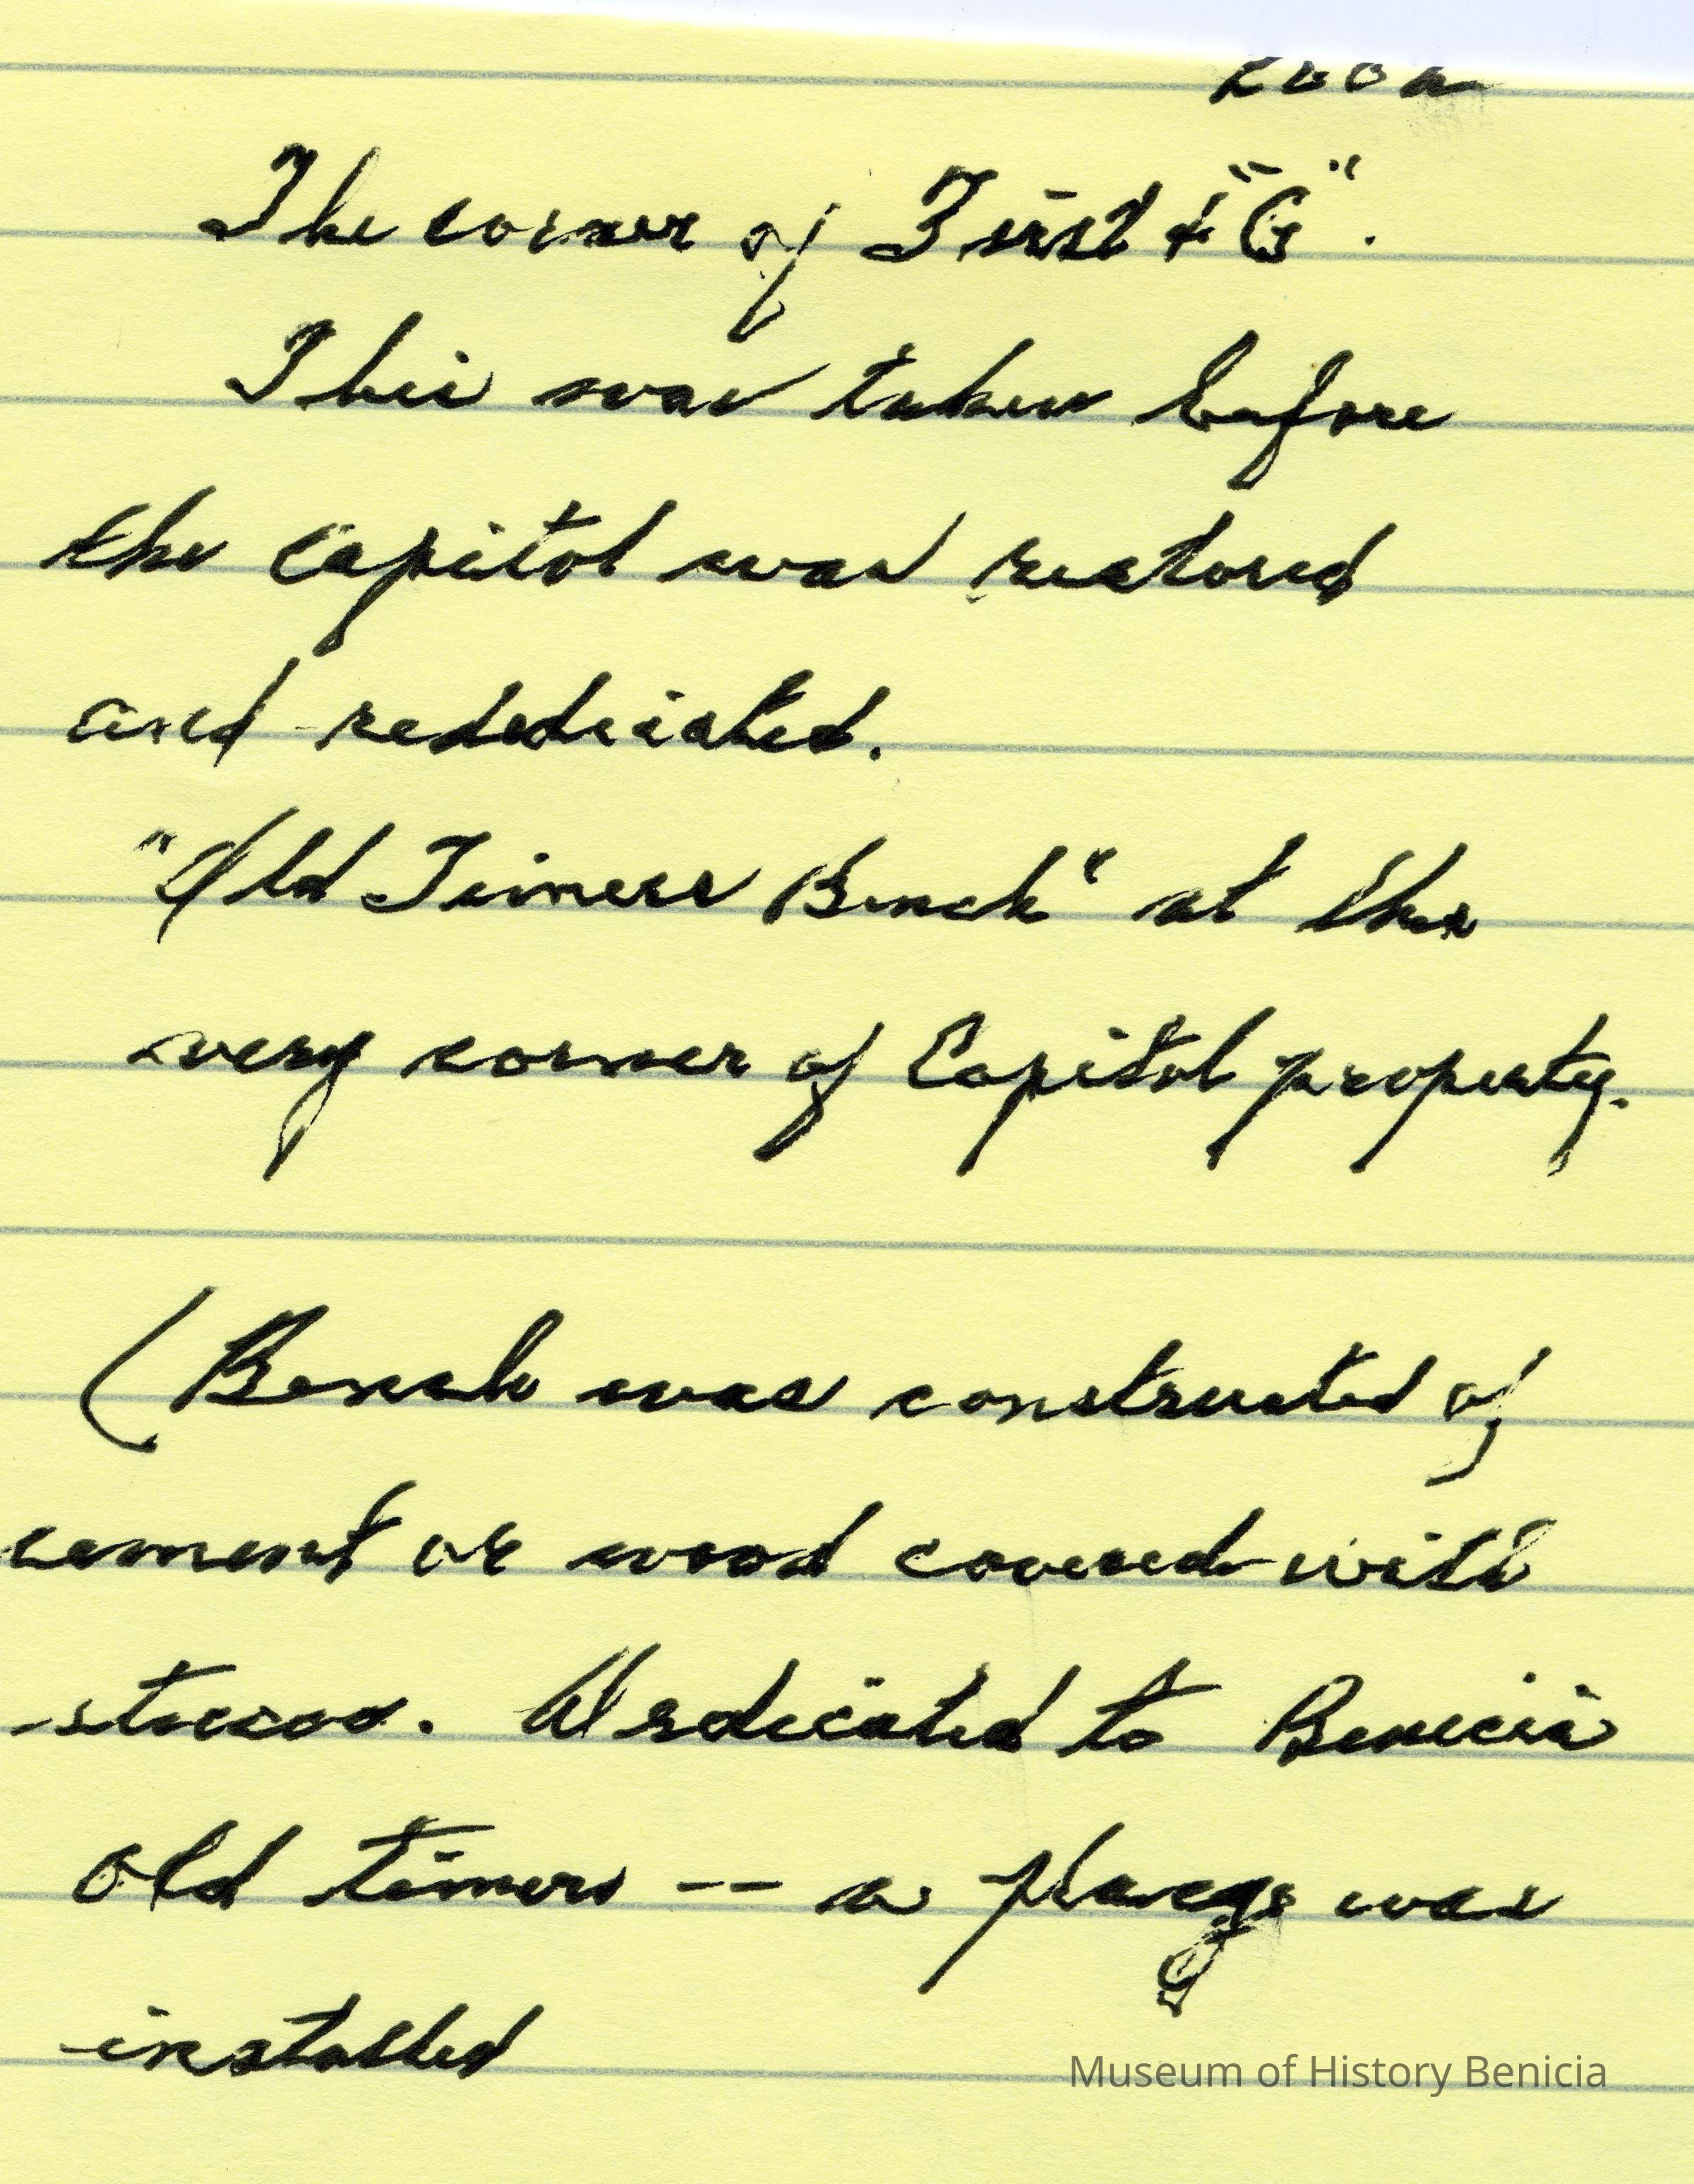 The corner of First & "G".
This was taken before
the Capitol was restored
and rededicated.
"Old Timers Bench" at the
very corner of Capitol property.
(Bench was constructed of
cement or wood covered with
stucco. Dedicated to Benicia
old timers -- a plaque was
installed
Museum of History Benicia